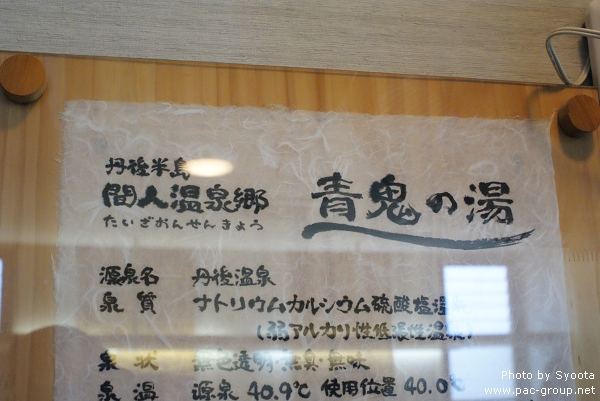 丹後半島
間人温泉郷
たいざおんせんきょう
青鬼の湯
源泉名 丹後温泉
泉質 ナトリウムカルシウム硫酸塩温泉
(弱アルカリ性低張性温泉)
泉状 無色透明・無臭・無味
泉温 源泉 40.9℃ 使用位置 40.0℃
Photo by Syoota
www.pac-group.net